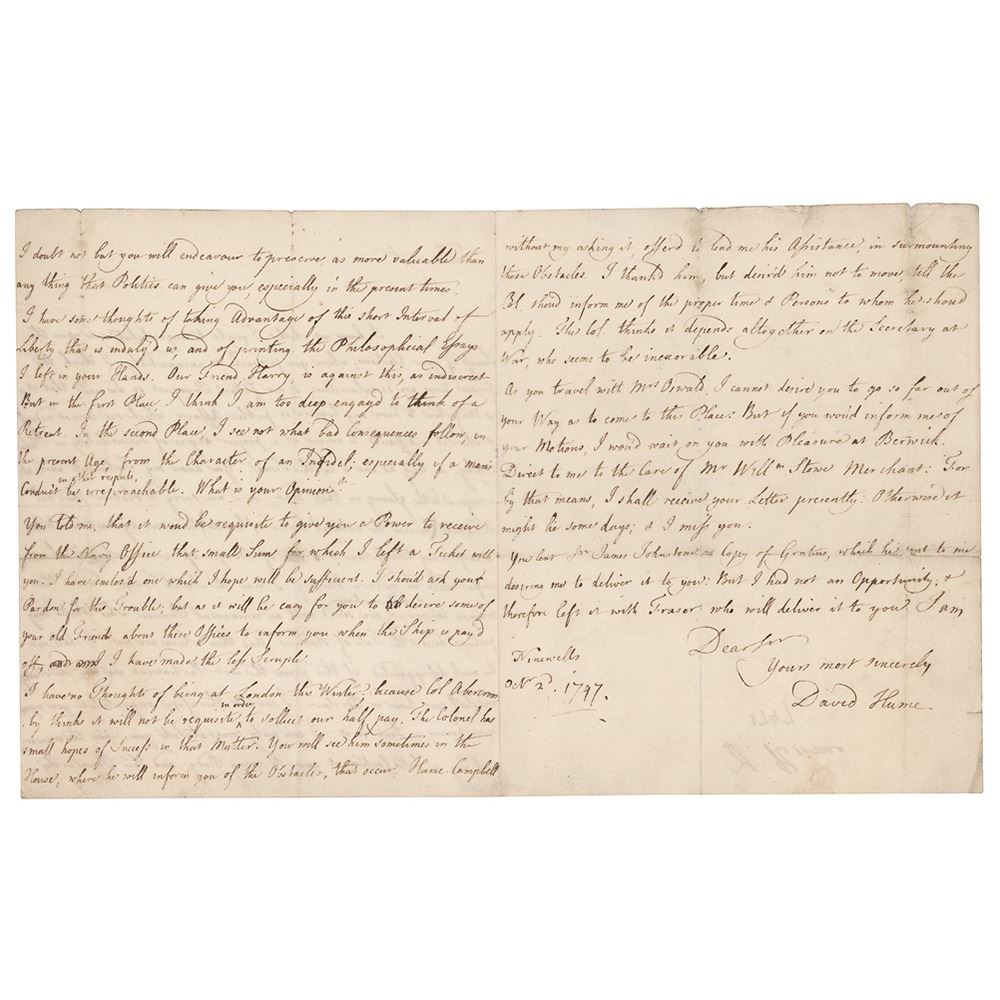 I doubt not but you will endeavour to preserve, as more valuable than
any thing that Politics can give you, especially in the present times.
I have some thoughts of taking Advantage of this short Interval of
Liberty that is indulg'd us, and of printing the Philosophical Essays
I left in your Hands. Our Friend, Harry, is against this, as indiscreet.
But in the first Place, I think I am too deep engag'd to think of a
Retreat. In the second Place, I see not what bad Consequences follow, in
the present Age, from the Character of an Infidel; especially if a man's
Conduct be in other respects irreproachable. What is your Opinion?
You told me, that it wou'd be requisite to give you a Power to receive
from the Navy Office that small Sum for which I left a Ticket with
you. I have enclos'd one which I hope will be sufficient. I shou'd ask your
Pardon for this Trouble; but as it will be easy for you to desire some of
your old Friends about these Offices to inform you when the Ship is pay'd
off, I have made the less Scruple.
I have no Thoughts of being at London this Winter; because Col Abercrom
by thinks it will not be requisite in order to collect our half pay. The Colonel has
small hopes of Success in that Matter. You will see him sometimes in the
House, where he will inform you of the Obstacles, that occur. Hume Campbell
without my asking it, offerd to lend me his Assistance, in surmounting
these Obstacles. I thank'd him, but desir'd him not to move, till the
Col. shoud inform me of the proper time & Persons to whom he should
apply. The Col. thinks it depends altogether on the Secretary at
War, who seems to be inexorable.
As you travel with Mrs Oswald, I cannot desire you to go so far out of
your Way as to come to this Place: But if you wou'd inform me of
your Motions, I would wait on you with Pleasure at Berwick.
Direct to me to the Care of Mr Willm Stowe Merchant: For
by that means, I shall receive your Letter presently: Otherwise it
might lie some days; & I miss you.
You lent Sir James Johnstone a Copy of Gratius, which he sent to me
desiring me to deliver it to you: But I had not an Opportunity; &
therefore left it with Fraser who will deliver it to you. I am
Dear Sir
Yours most sincerely
David Hume.
Ninewells
Octr 2d. 1747.